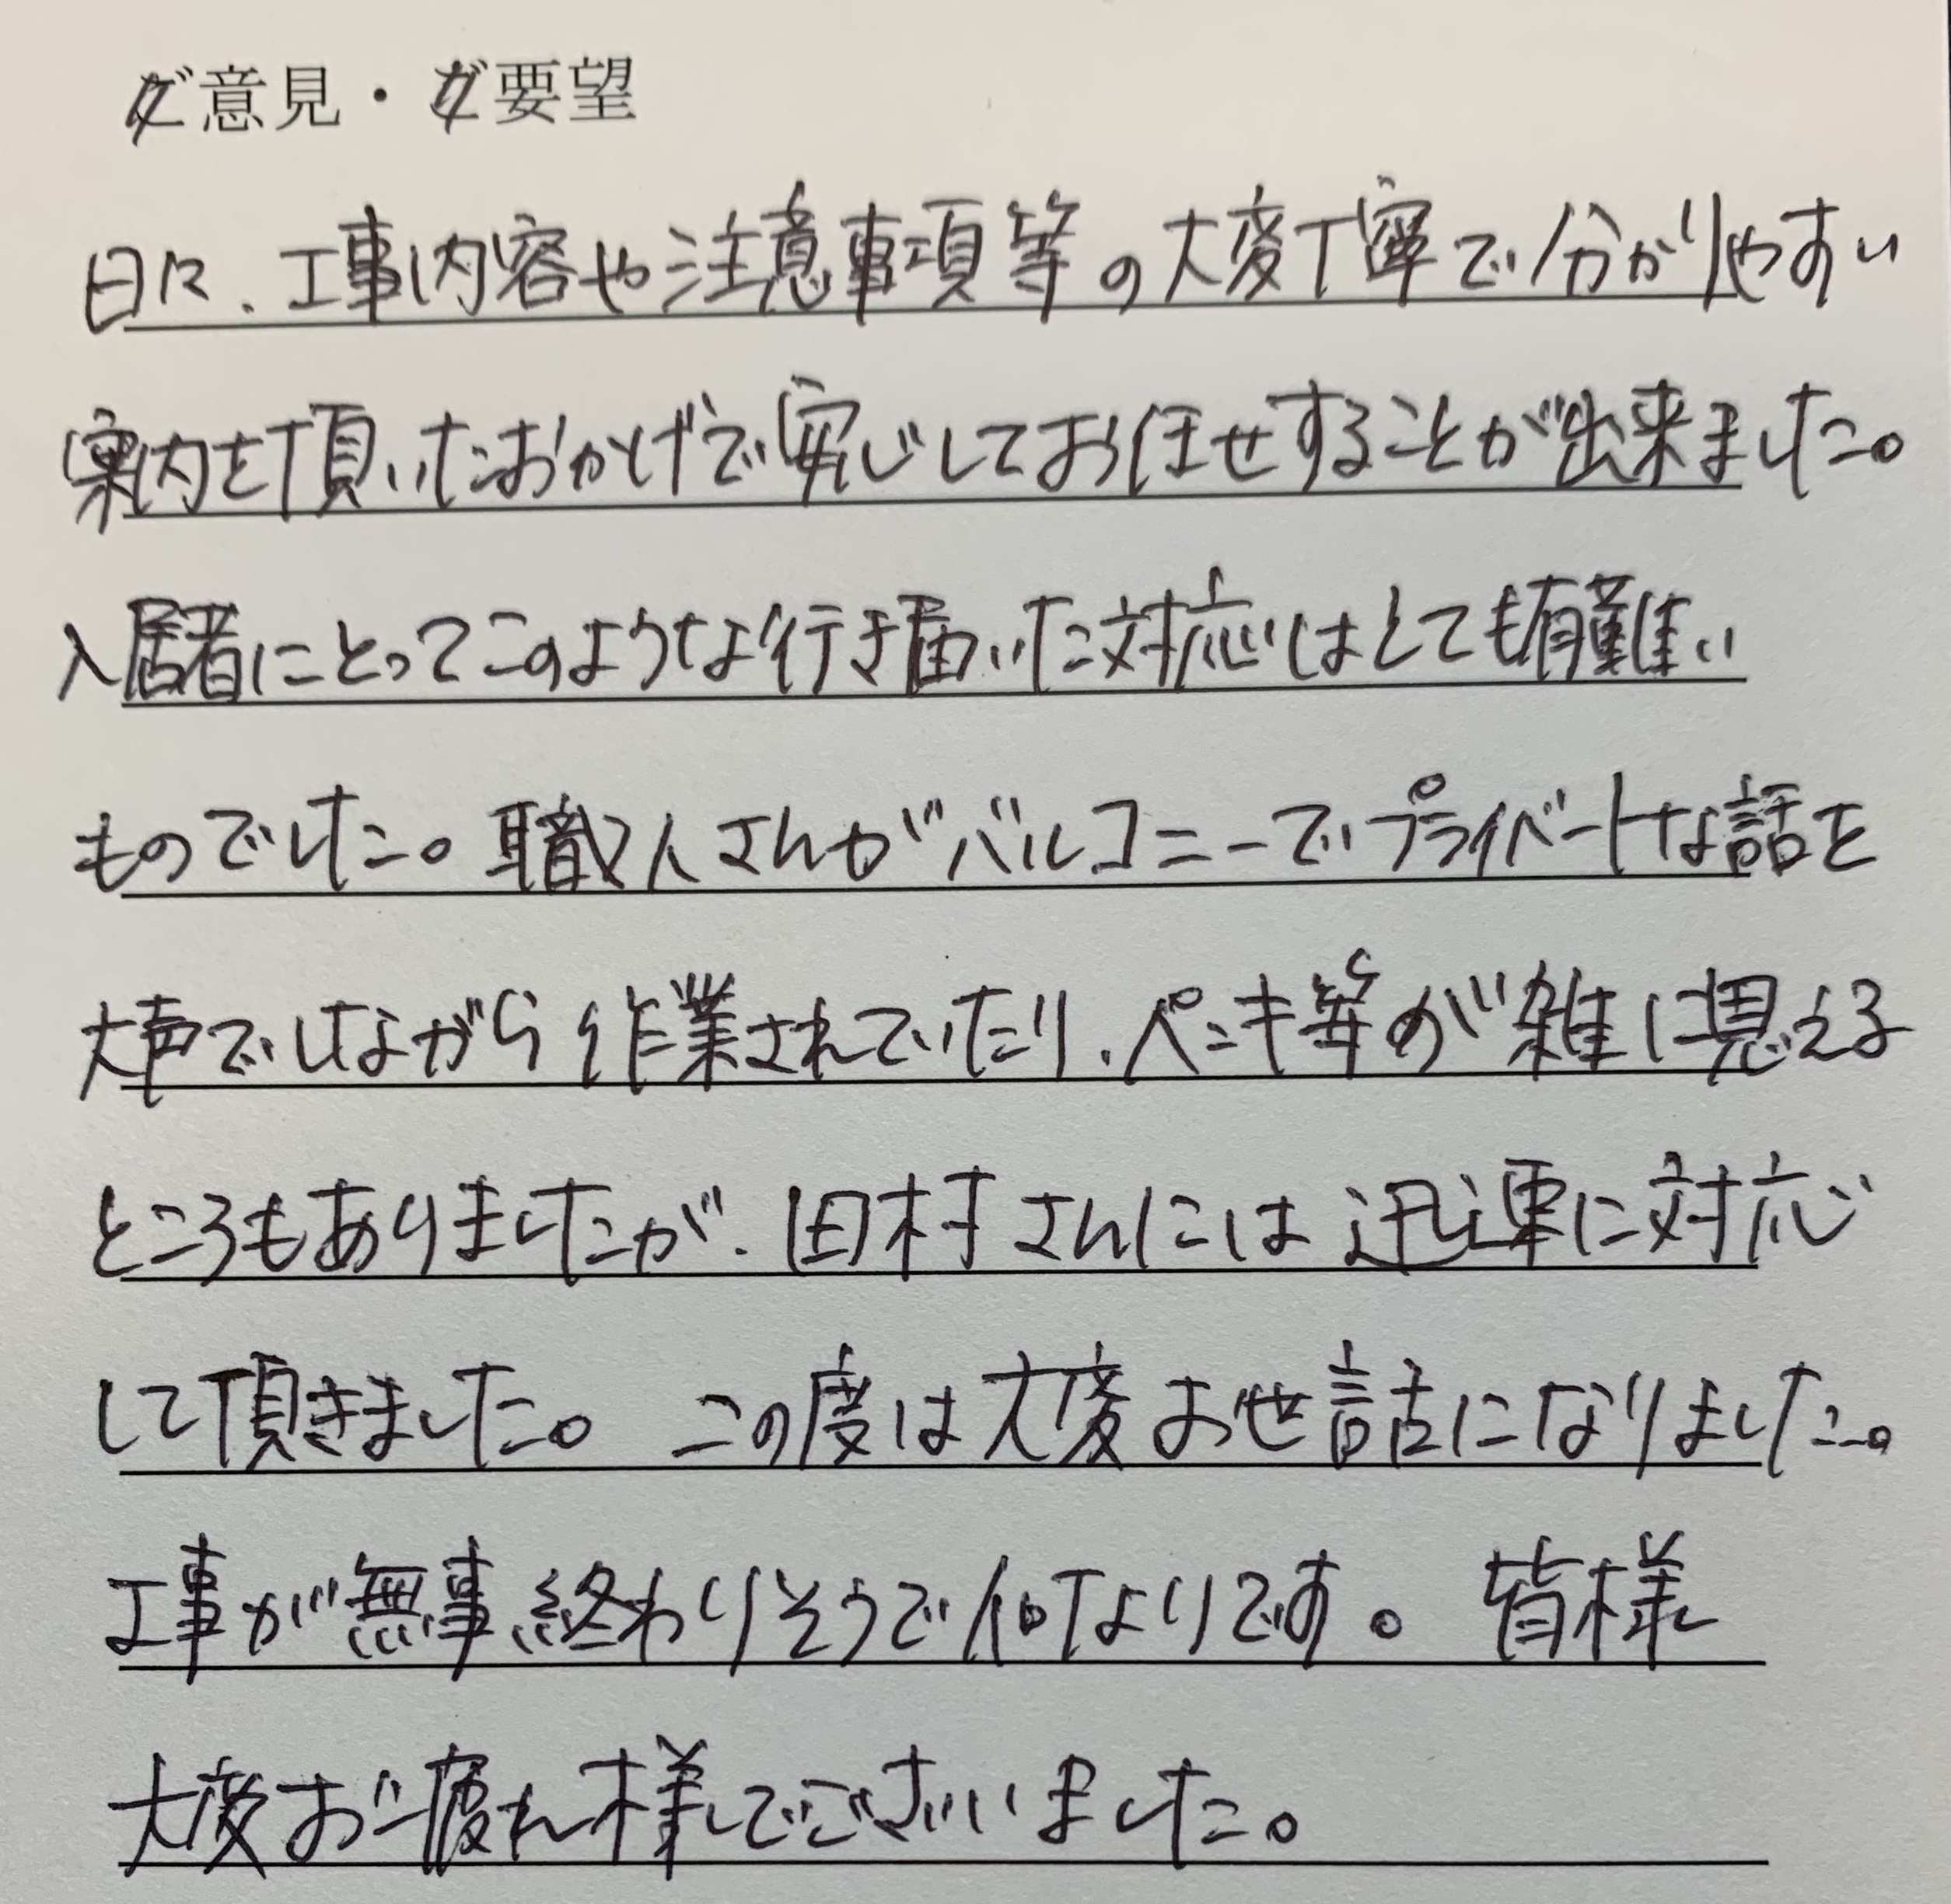 ご意見・ご要望
日々、工事内容や注意事項等の大変丁寧で分かりやすい
案内を頂いたおかげで安心してお任せすることが出来ました。
入居者にとってこのような行き届いた対応はとても有難い
ものでした。職人さんがバルコニーでプライベートな話を
大声でしながら作業されていたり、ペンキ等が雑に思える
ところもありましたが、田村さんには迅速に対応
して頂きました。この度は大変お世話になりました。
工事が無事終わりそうで何よりです。皆様
大変お疲れ様でございました。